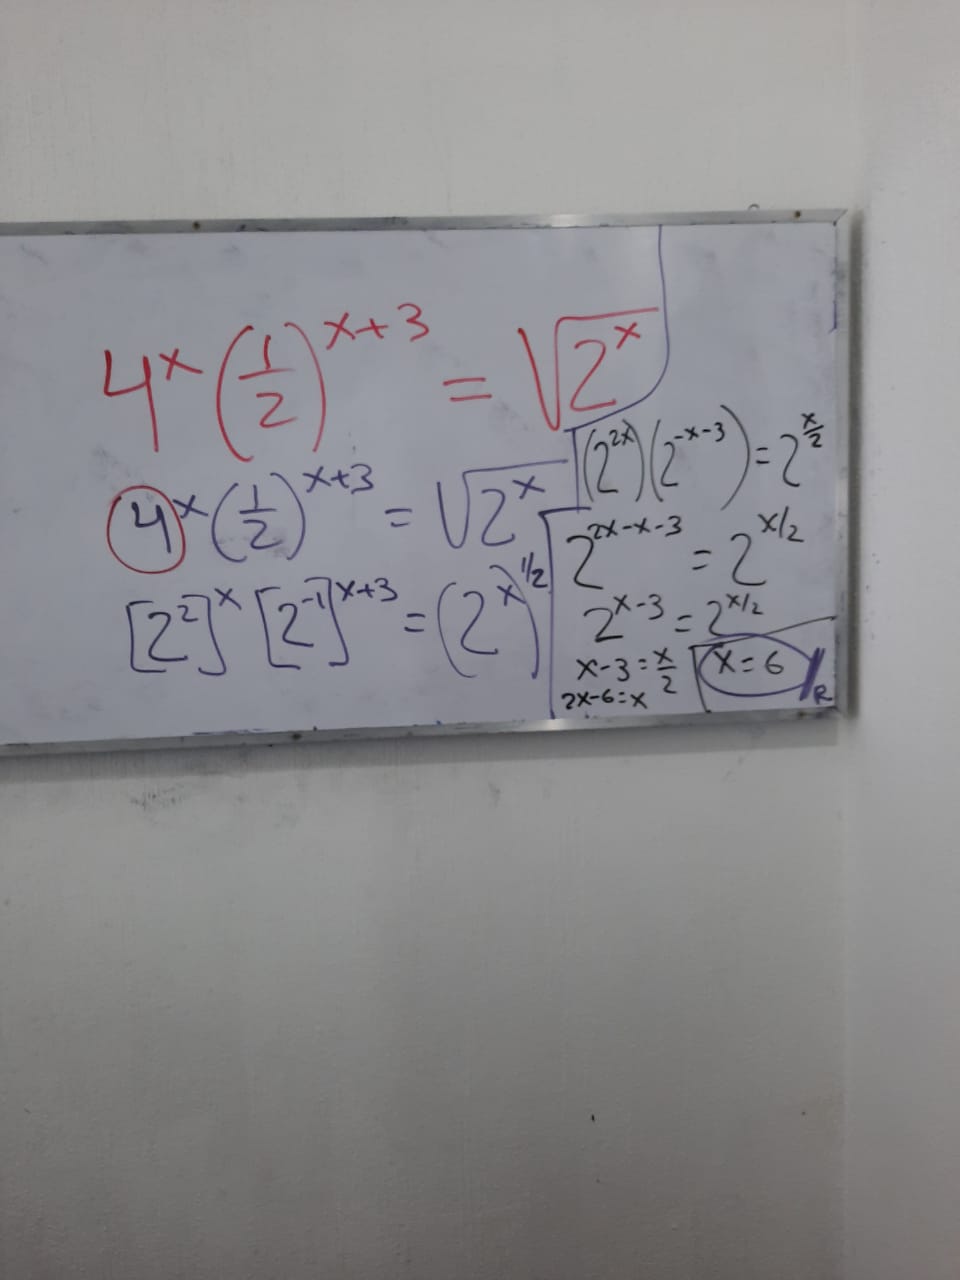 4^x (1/2)^(x+3) = √(2^x)
4^x (1/2)^(x+3) = √(2^x)
[2^2]^x [2^-1]^(x+3) = (2^x)^(1/2)
(2^(2x)) (2^(-x-3)) = 2^(x/2)
2^(2x-x-3) = 2^(x/2)
2^(x-3) = 2^(x/2)
x-3 = x/2
2x-6 = x
x = 6
R